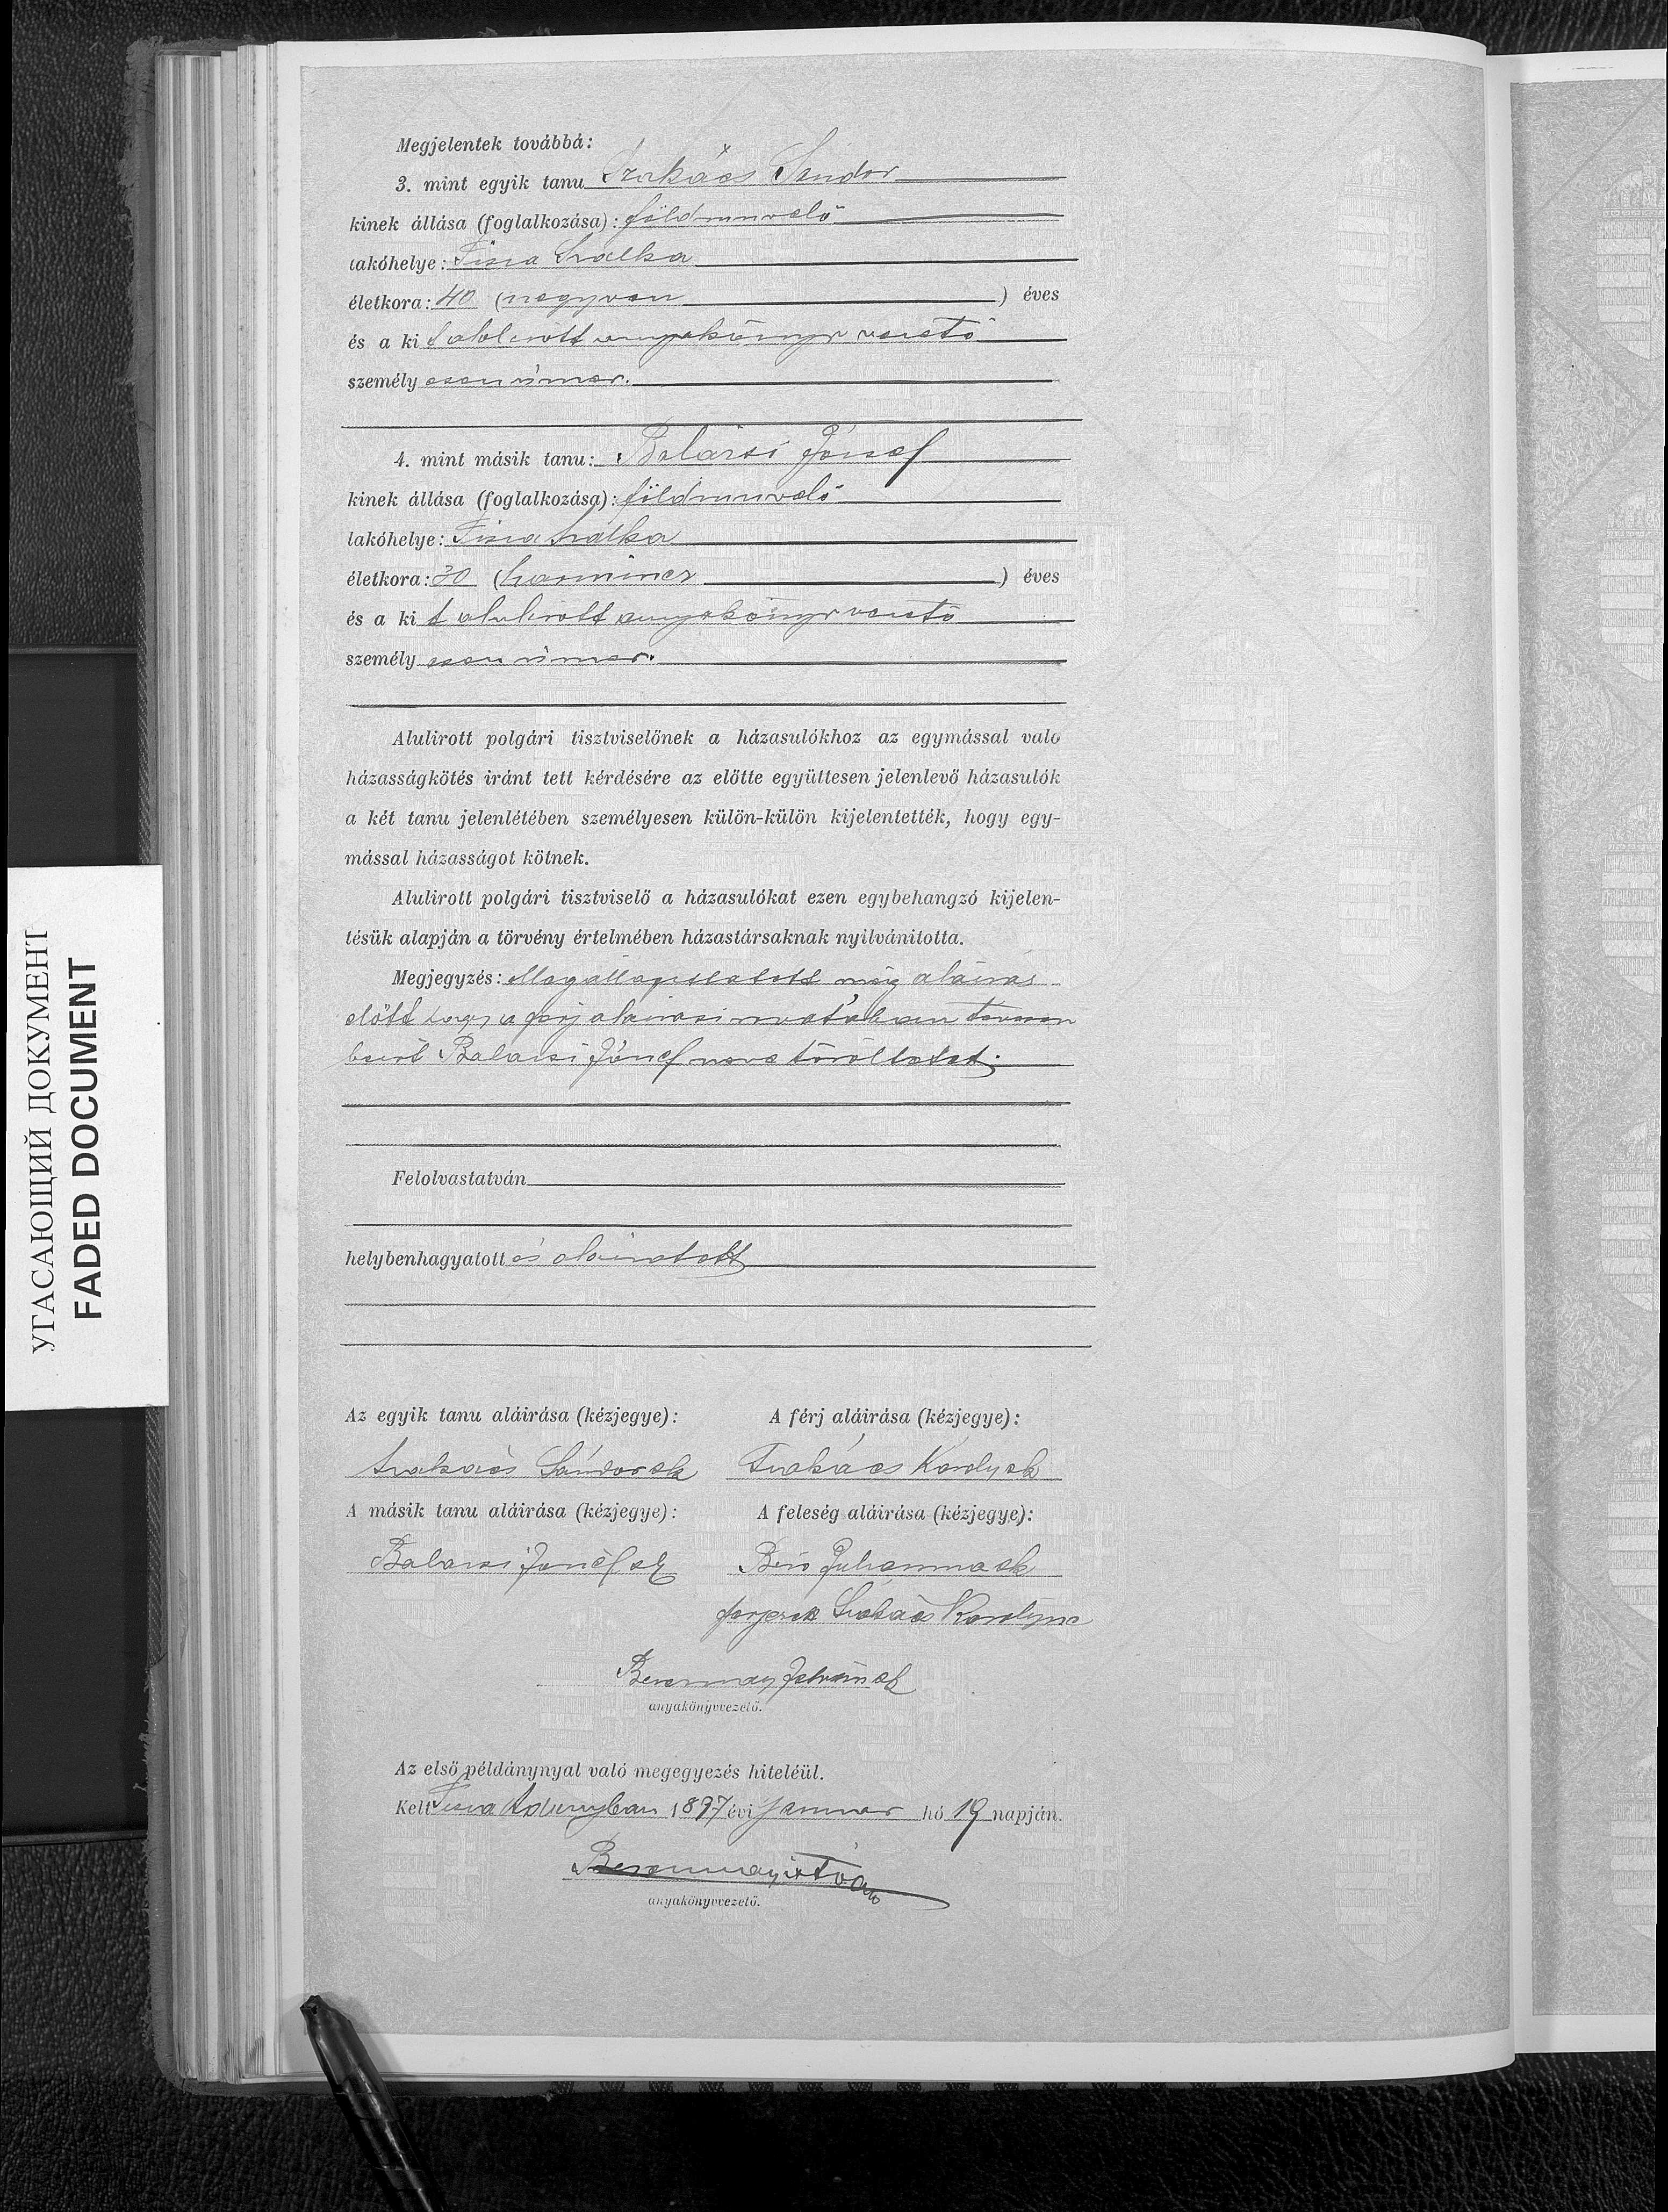 Megjelentek továbbá:
3. mint egyik tanu Szakács Sándor
kinek állása (foglalkozása): földmuveló
lakóhelye: Tisza Szalka
életkora: 40 (negyven) éves
és a ki t alulirott anyakönyvvezető
személy esen ismer.
4. mint másik tanu: Balázsi József
kinek állása (foglalkozása): földmuveló
lakóhelye: Tisza Szalka
életkora: 30 (harmincz) éves
és a ki t alulirott anyakönyvvezető
személy esen ismer.
Alulirott polgári tisztviselőnek a házasulókhoz az egymással való
házasságkötés iránt tett kérdésére az előtte együttesen jelenlevő házasulók
a két tanu jelenlétében személyesen külön-külön kijelentették, hogy egy-
mással házasságot kötnek.
Alulirott polgári tisztviselő a házasulókat ezen egybehangzó kijelen-
tésük alapján a törvény értelmében házastársaknak nyilvánitotta.
Megjegyzés: Megállapittatott még aláirás
előtt hogy a férj aláirási rovatában
Balázsi József neve töröltetett.
Felolvastatván
helybenhagyatott és aláiratott
Az egyik tanu aláirása (kézjegye): A férj aláirása (kézjegye):
Szakács Sándor sk Szakács Károly sk
A másik tanu aláirása (kézjegye): A feleség aláirása (kézjegye):
Balázsi József sk Biró Juhanna sk
férjezett Szakács Karolyne
István sk
anyakönyvvezető.
Az első példánynyal való megegyezés hiteléül.
Kelt Tisza Adonyban 1897 évi januar hó 19 napján.
István
anyakönyvvezető.
УГАСАЮЩИЙ ДОКУМЕНТ
FADED DOCUMENT